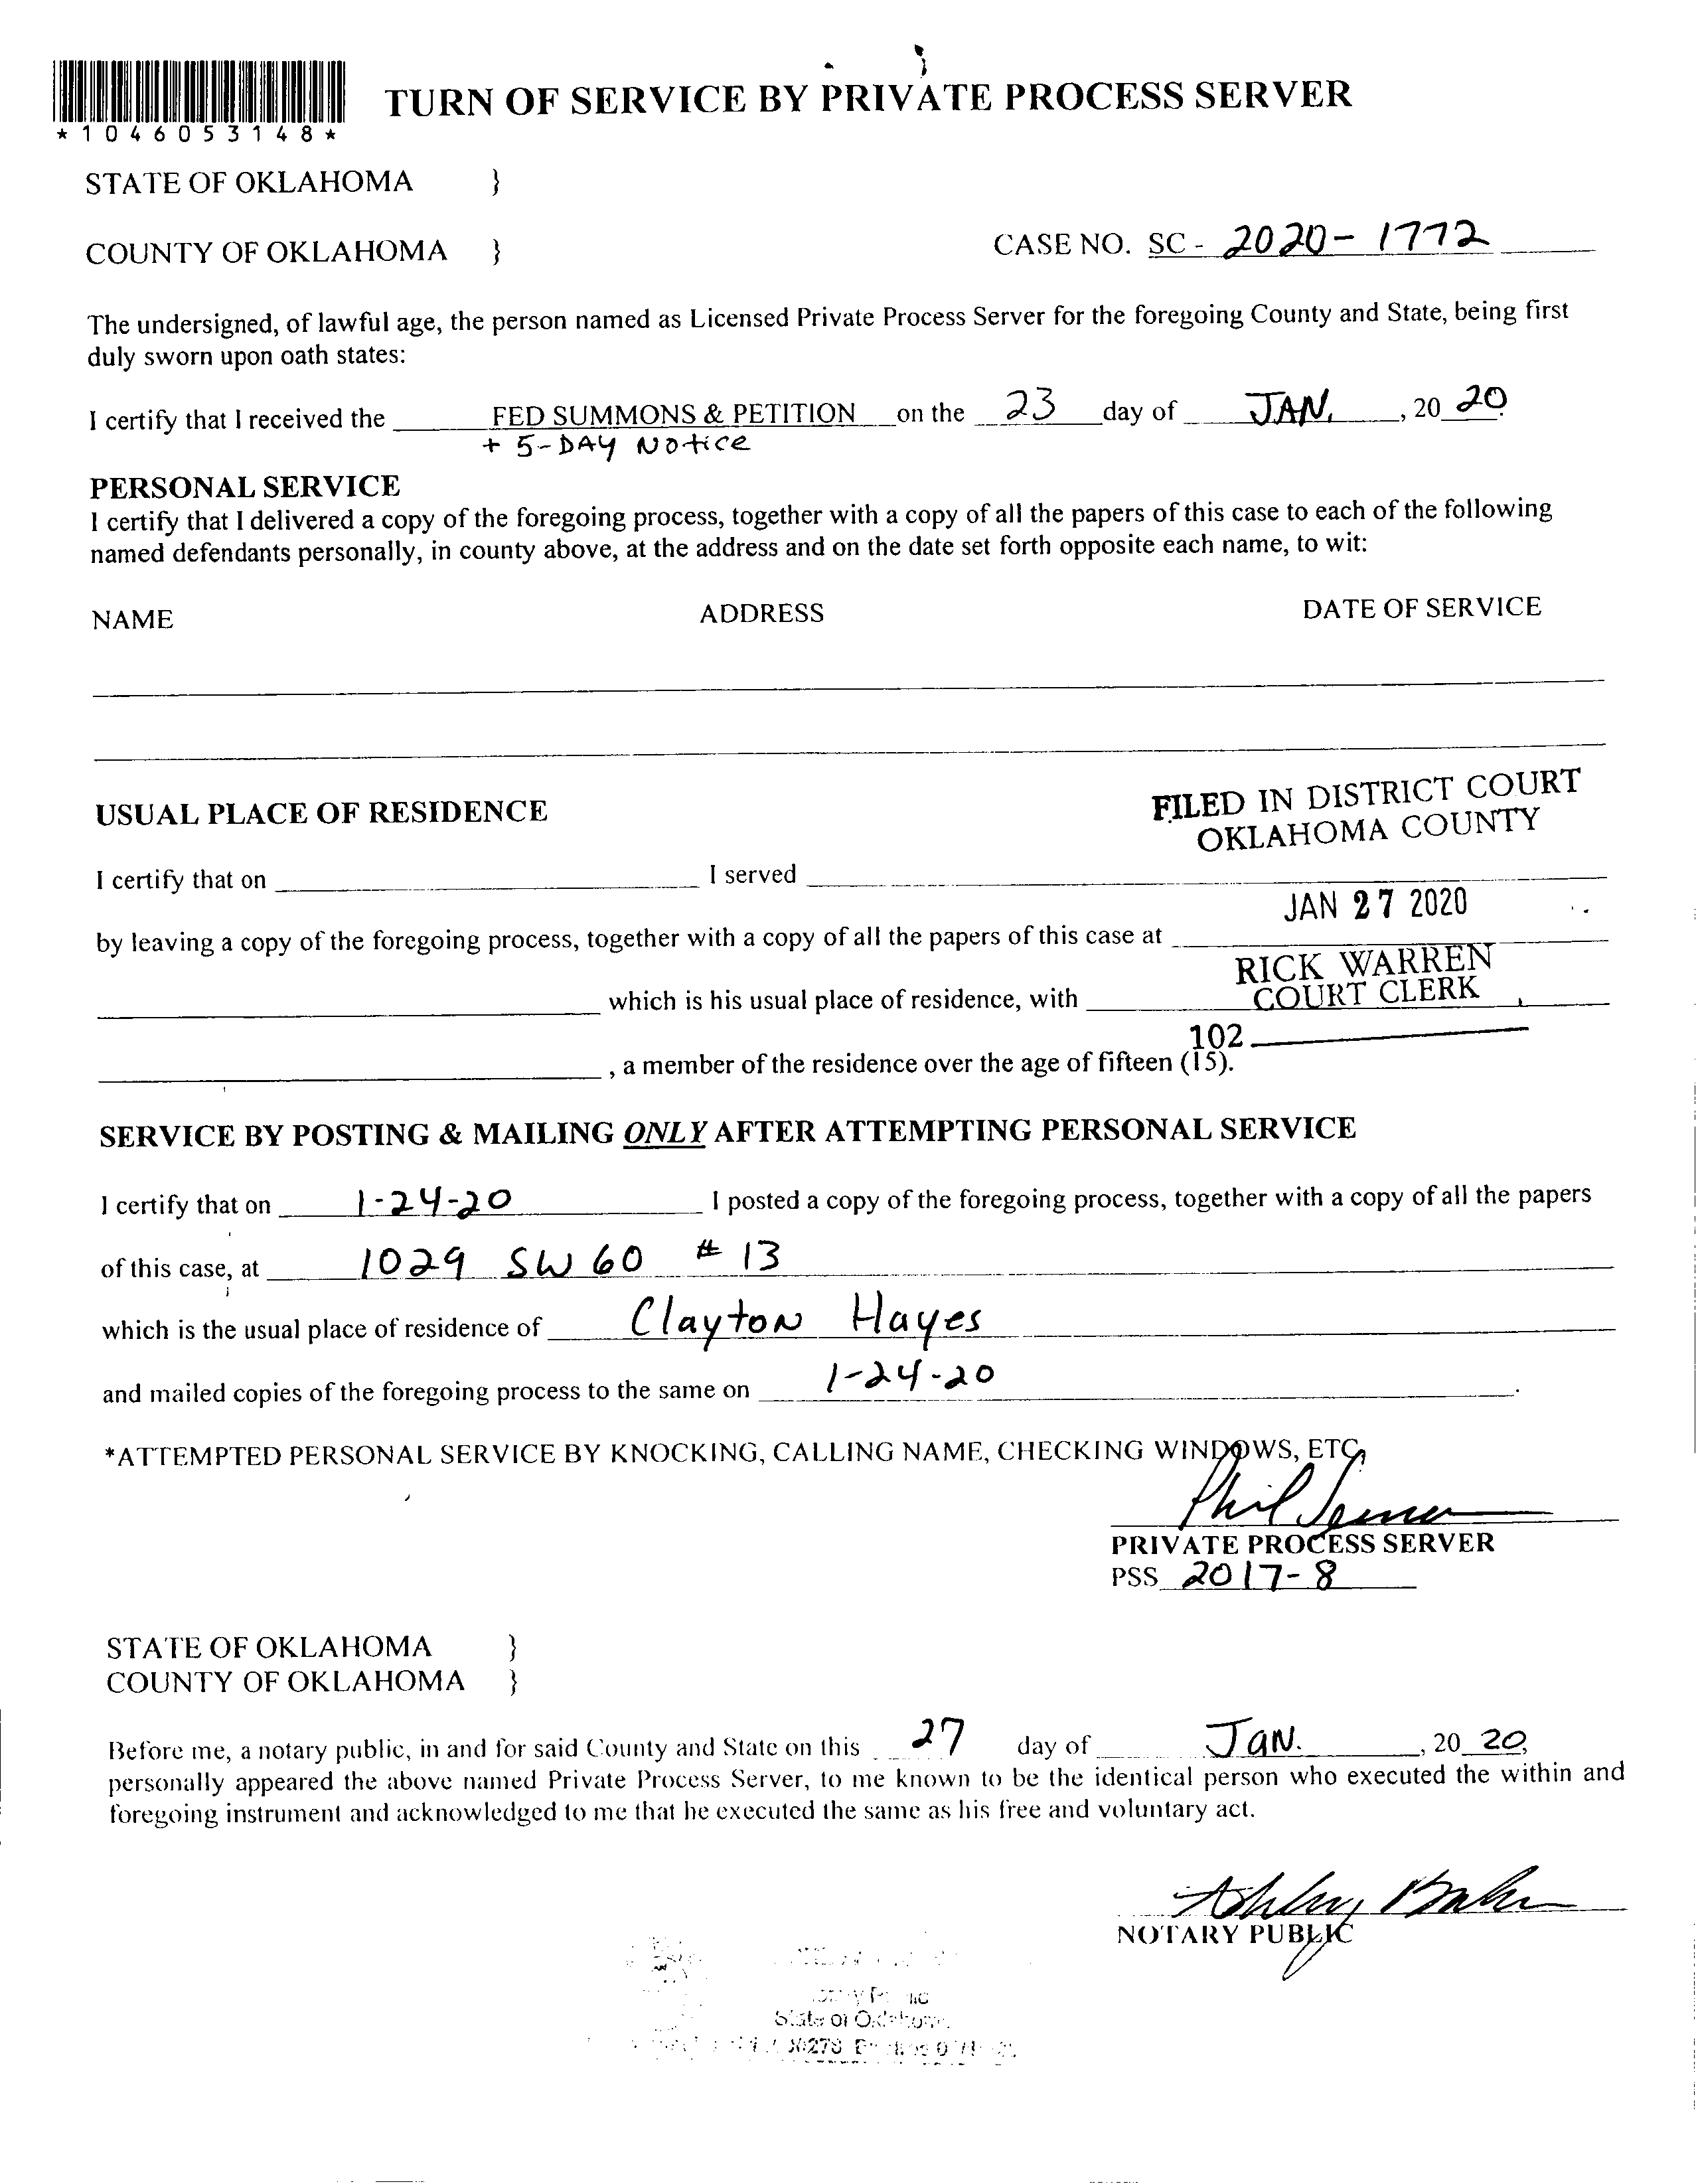 *1046053148*
TURN OF SERVICE BY PRIVATE PROCESS SERVER
STATE OF OKLAHOMA }
COUNTY OF OKLAHOMA } CASE NO. SC - 2020-1772
The undersigned, of lawful age, the person named as Licensed Private Process Server for the foregoing County and State, being first
duly sworn upon oath states:
I certify that I received the FED SUMMONS & PETITION on the 23 day of JAN. , 20 20.
+ 5-DAY Notice
PERSONAL SERVICE
I certify that I delivered a copy of the foregoing process, together with a copy of all the papers of this case to each of the following
named defendants personally, in county above, at the address and on the date set forth opposite each name, to wit:
NAME ADDRESS DATE OF SERVICE
FILED IN DISTRICT COURT
OKLAHOMA COUNTY
USUAL PLACE OF RESIDENCE
I certify that on I served
JAN 27 2020
by leaving a copy of the foregoing process, together with a copy of all the papers of this case at
RICK WARREN
COURT CLERK
which is his usual place of residence, with ,
102
, a member of the residence over the age of fifteen (15).
SERVICE BY POSTING & MAILING ONLY AFTER ATTEMPTING PERSONAL SERVICE
I certify that on 1-24-20 I posted a copy of the foregoing process, together with a copy of all the papers
of this case, at 1029 SW 60 # 13
which is the usual place of residence of Clayton Hayes
and mailed copies of the foregoing process to the same on 1-24-20 .
*ATTEMPTED PERSONAL SERVICE BY KNOCKING, CALLING NAME, CHECKING WINDOWS, ETC.
Phil
PRIVATE PROCESS SERVER
PSS 2017-8
STATE OF OKLAHOMA }
COUNTY OF OKLAHOMA }
Before me, a notary public, in and for said County and State on this 27 day of JaN. , 20 20,
personally appeared the above named Private Process Server, to me known to be the identical person who executed the within and
foregoing instrument and acknowledged to me that he executed the same as his free and voluntary act.
Ashley
NOTARY PUBLIC
State of Oklahoma